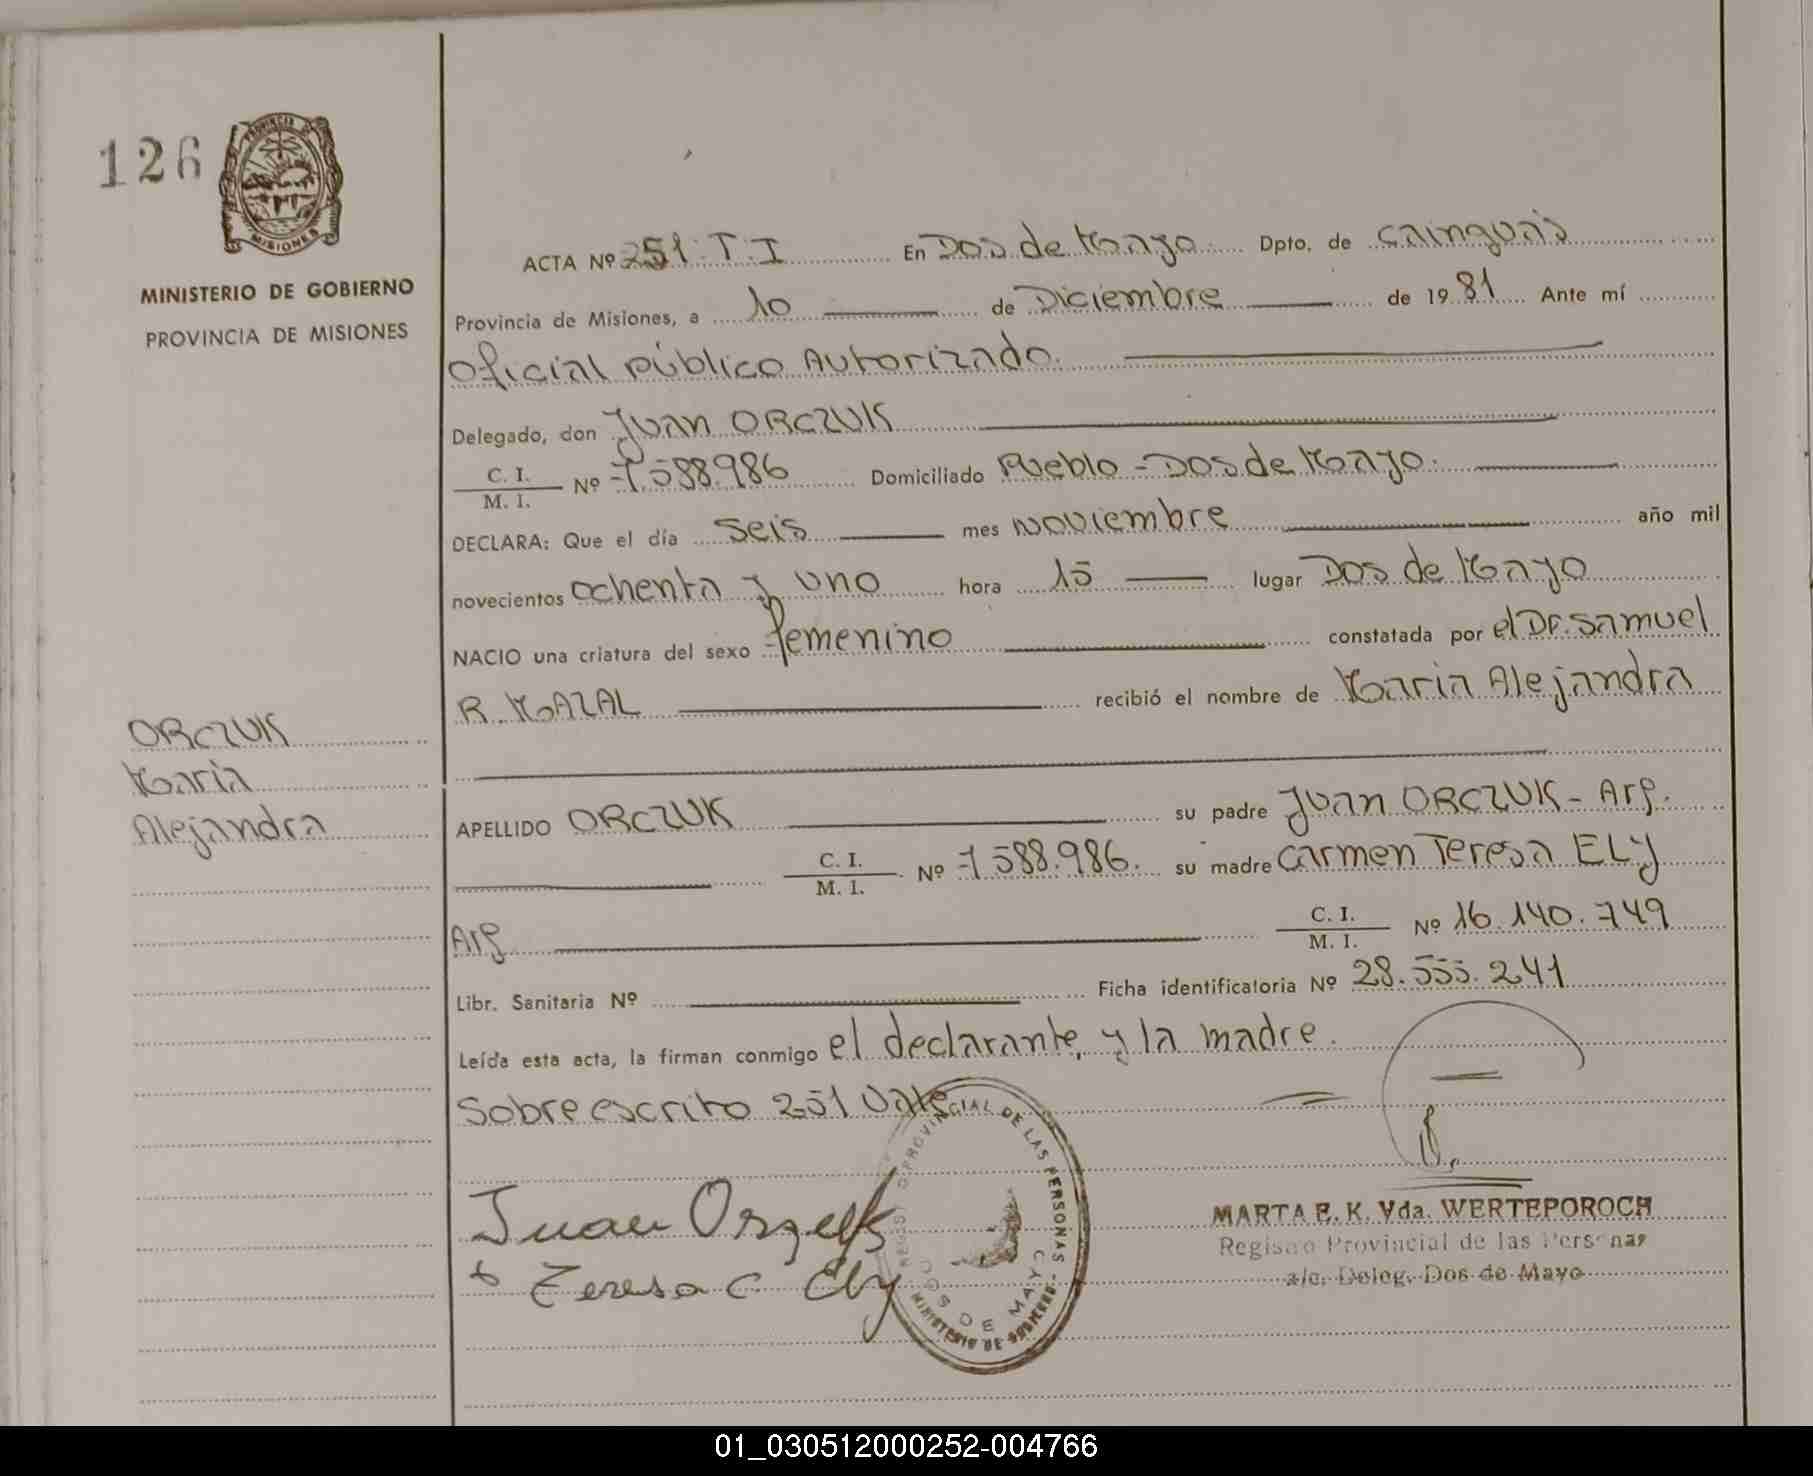 126
PROVINCIA DE
MISIONES
MINISTERIO DE GOBIERNO
PROVINCIA DE MISIONES
ACTA Nº 251. T. I En Dos de Mayo Dpto. de Cainguás
Provincia de Misiones, a 10 de Diciembre de 1981 Ante mí
Oficial Público Autorizado.
Delegado, don Juan ORCZUK
C. I.
M. I. Nº 7.588.986 Domiciliado Pueblo - Dos de Mayo.
DECLARA: Que el día seis mes noviembre año mil
novecientos ochenta y uno hora 15 lugar Dos de Mayo
NACIO una criatura del sexo femenino constatada por el Dr. Samuel
R. MAZAL recibió el nombre de Maria Alejandra
ORCZUK
Maria
Alejandra
APELLIDO ORCZUK su padre Juan ORCZUK - Arg.
C. I.
M. I. Nº 7.588.986. su madre Carmen Teresa ELY
Arg C. I.
M. I. Nº 16.140.749
Libr. Sanitaria Nº Ficha identificatoria Nº 28.555.241
Leída esta acta, la firman conmigo el declarante, y la madre.
Sobre escrito 251 Vale
Juan Orczuk
Teresa C. Ely
PROVINCIAL DE LAS PERSONAS
DOS DE MAYO
MINISTERIO DE GOBIERNO
MARTA E. K. Vda. WERTEPOROCH
Registro Provincial de las Personas
a/c. Deleg. Dos de Mayo
01_030512000252-004766